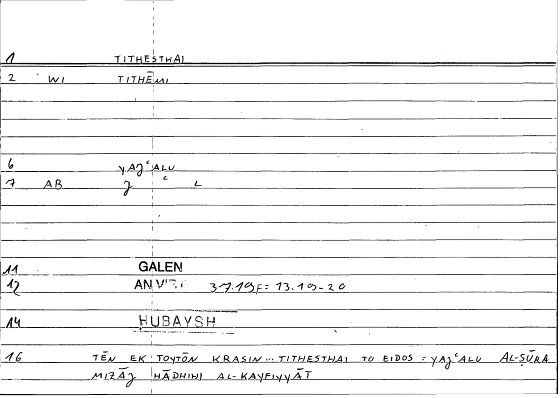 1 TITHESTHAI
2 WI TITHĒMI
6 YAJʿALU
7 AB J ʿ L
11 GALEN
12 AN VIRT. 37.19F = 13.19-20
14 ḤUBAYSH
16 TĒN EK TOYTŌN KRASIN... TITHESTHAI TO EIDOS = YAJʿALU AL-ṢŪRA
MIZĀJ HĀDHIHI AL-KAYFIYYĀT